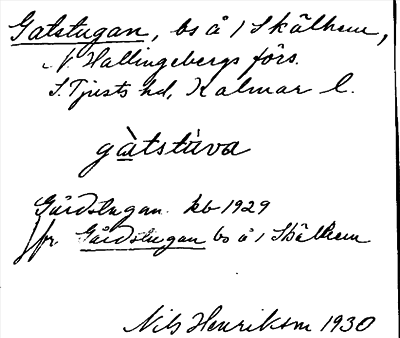 Gatstugan, bs å 1 Skälhem,
N. Hallingebergs förs.
S. Tjusts hd, Kalmar l.
gàtstùva
Gårdstugan kb 1929
jfr Gårdstugan bs å 1 Skälhem
Nils Henrikson 1930